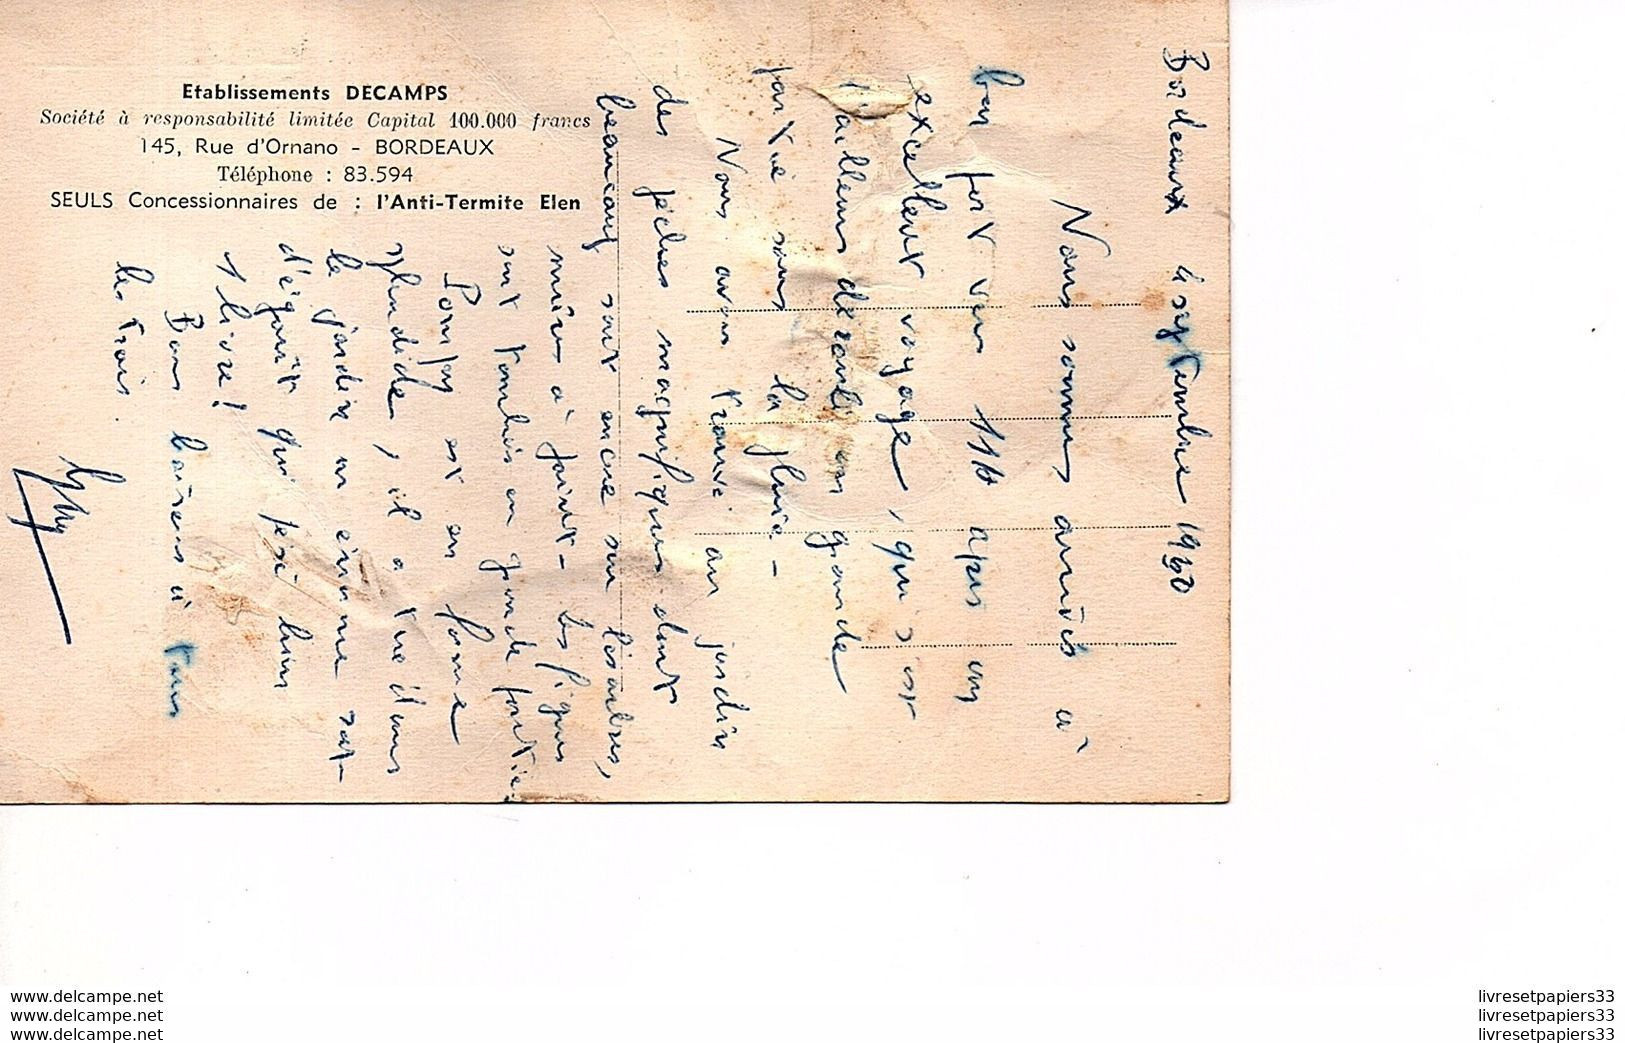 Etablissements DECAMPS
Société à responsabilité limitée Capital 100.000 francs
145, Rue d'Ornano - BORDEAUX
Téléphone : 83.594
SEULS Concessionnaires de : l'Anti-Termite Elen
Bordeaux 4 septembre 1950
Nous sommes arrivés à
bon port vers 11h après un
excellent voyage, qui s'est
d'ailleurs déroulé en grande
partie sous la pluie -
Nous avons trouvé au jardin
des pêches magnifiques dont
beaucoup sont encore sur l'arbre,
mûres à point - Les figues
sont tombées en grande partie
est en forme
splendide, il a tué dans
le jardin un énorme rat
d'égout qui pesait bien
1 livre!
Bons baisers à tous
les trois.
www.delcampe.net
www.delcampe.net
www.delcampe.net
livresetpapiers33
livresetpapiers33
livresetpapiers33